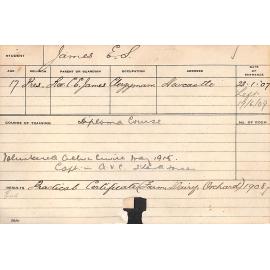 STUDENT James E. S.
AGE CHURCH PARENT OR GUARDIAN OCCUPATION ADDRESS DATE OF ENTRANCE
17 Pres. Rev. C. E. James Clergyman Newcastle 23·1·07
Left
19/6/09
COURSE OF TRAINING Diploma Course NO. OF BOOK
Volunteered Active Service May 1915.
Capt. in A V C
RESULTS Practical Certificate (Farm Dairy, Orchard) 1908